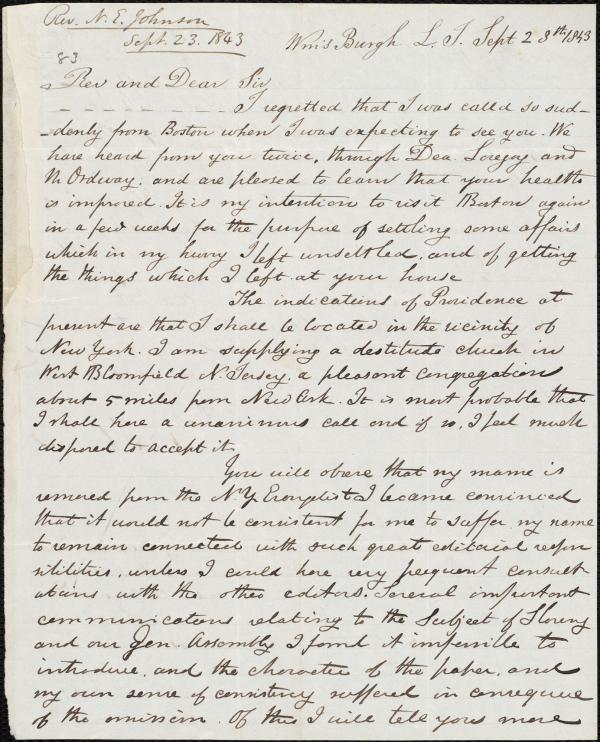 Rev. N. E. Johnson
Sept. 23. 1843
83
Wms Burgh L. I. Sept 28th/1843
Rev and Dear Sir
I regretted that I was called so sud-
-denly from Boston when I was expecting to see you. We
have heard from you twice, through Dea. Lovejoy and
Mr Ordway. and are pleased to learn that your health
is improved. It is my intention to visit Boston again
in a few weeks for the purpose of settling some affairs
which in my hurry I left unsettled. and of getting
the things which I left at your house
The indications of Providence at
present are that I shall be located in the vicinity of
New York. I am supplying a destitute church in
West Bloomfield N. Jersey. a pleasant congregation
about 5 miles from Newark. It is most probable that
I shall have a unanimous call and if so, I feel much
disposed to accept it
You will observe that my name is
removed from the N.Y Evangelist. I became convinced
that it would not be consistent for me to suffer my name
to remain connected with such great editorial respon
sibilities, unless I could have very frequent consult-
ations with the other editors. Several important
communications relating to the Subject of Slavery
and our Gen. Assembly I found it impossible to
introduce, and the character of the paper, and
my own sense of consistency suffered in consequence
of the omission. Of this I will tell you more